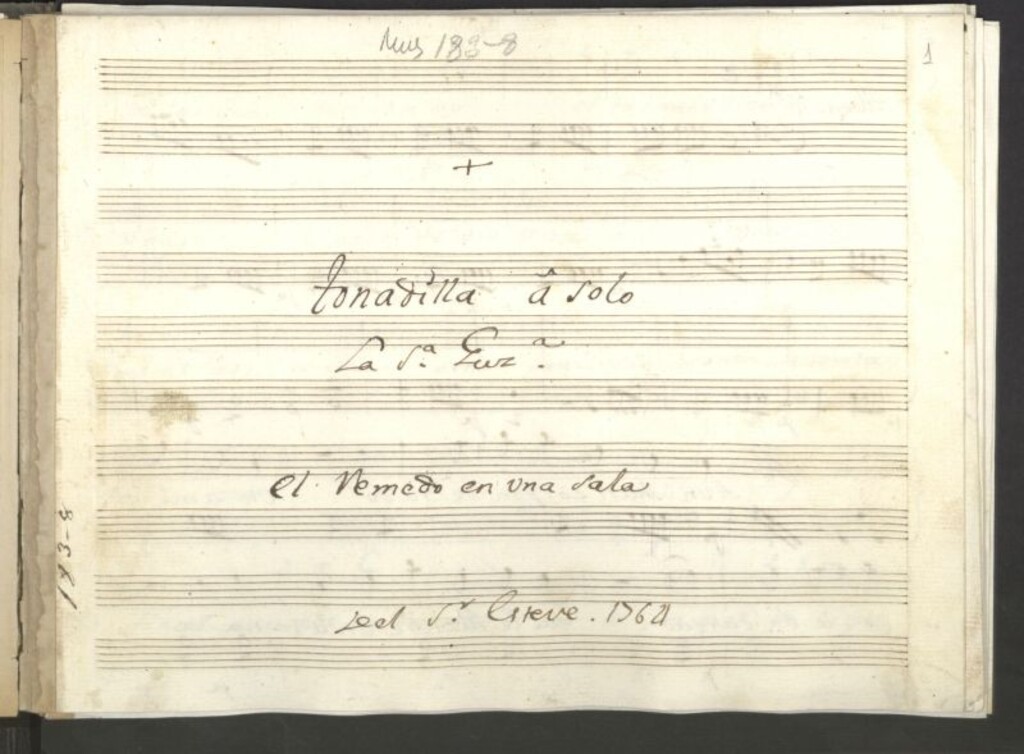 Mus 183-8
1
+
tonadilla â solo
La S.ª Guz.ª
el Remedo en vna sala
Del S.r Esteve. 1764